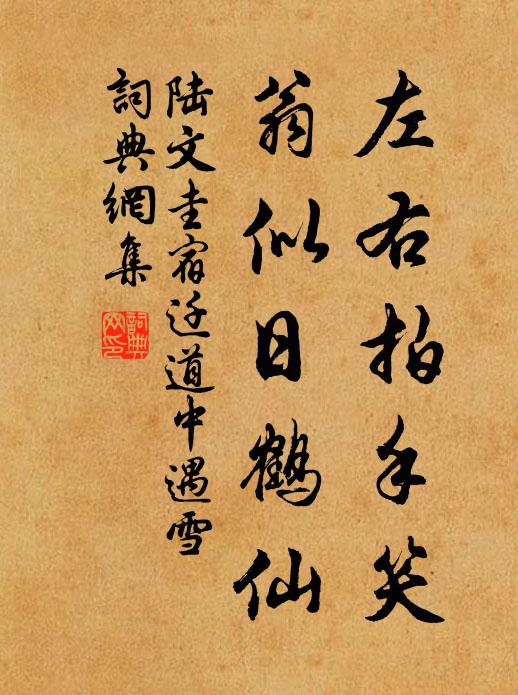 左右拍手笑
翁似日鶴仙
陸文圭宿迁道中遇雪
詞典網集
詞典网印